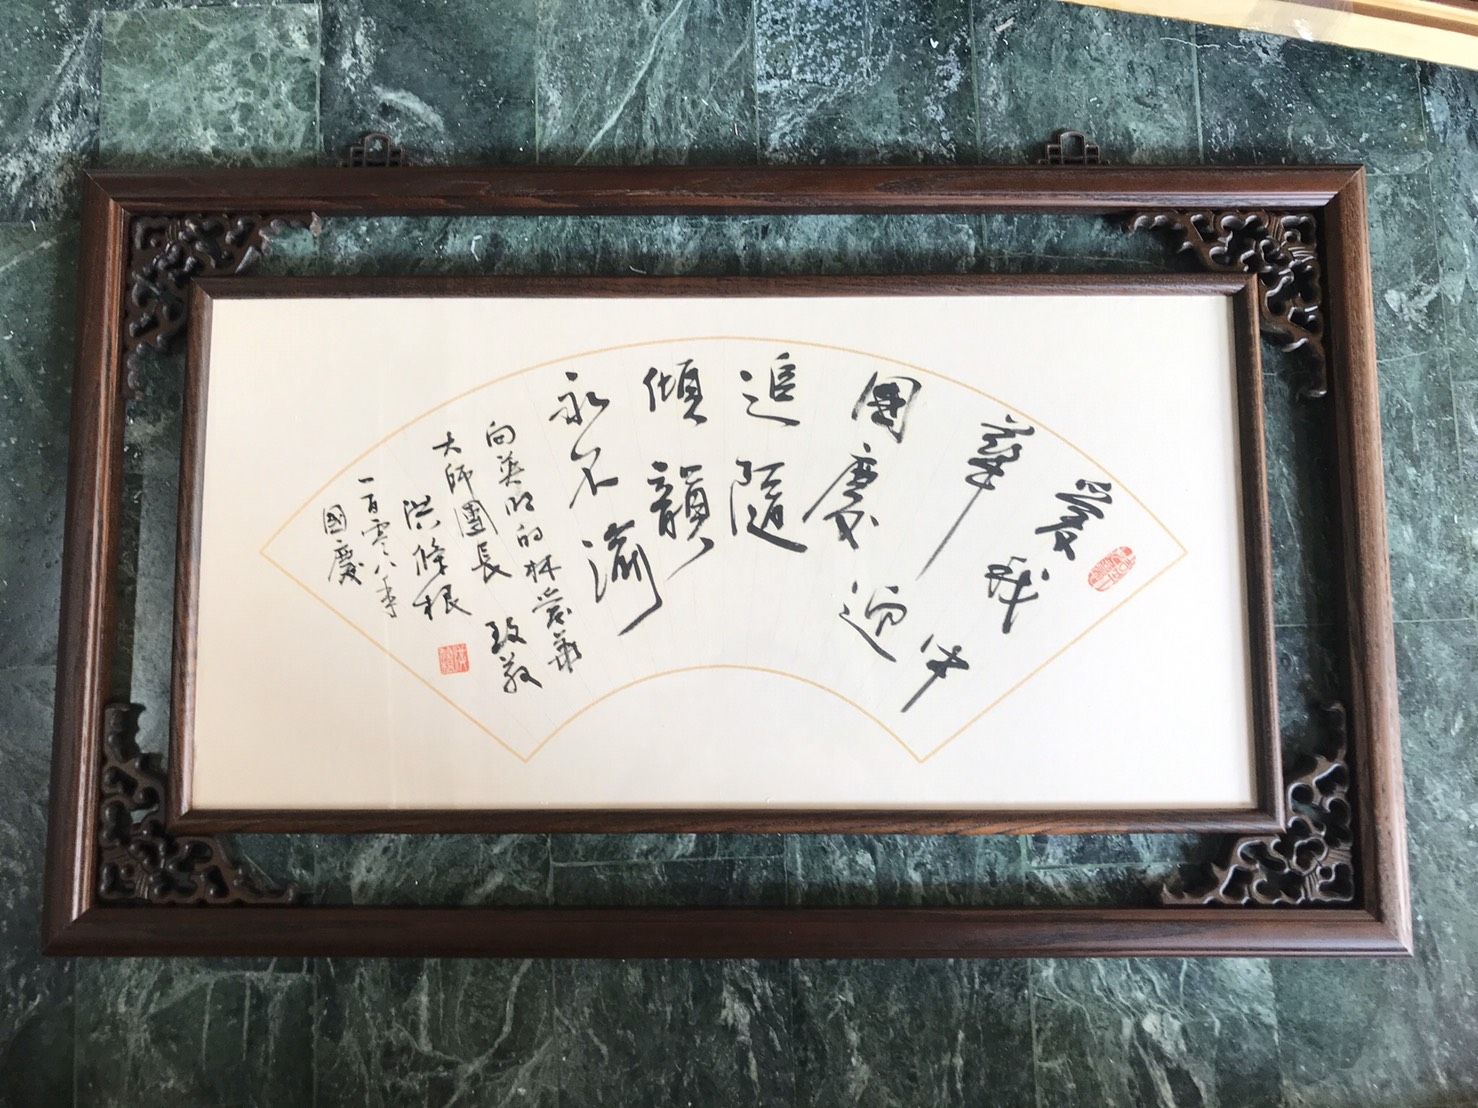 愛我中
華迎
國慶
追隨
傾韻
永不渝
向英明的林華
大師團長 致敬
洪條根
一百零八年
國慶